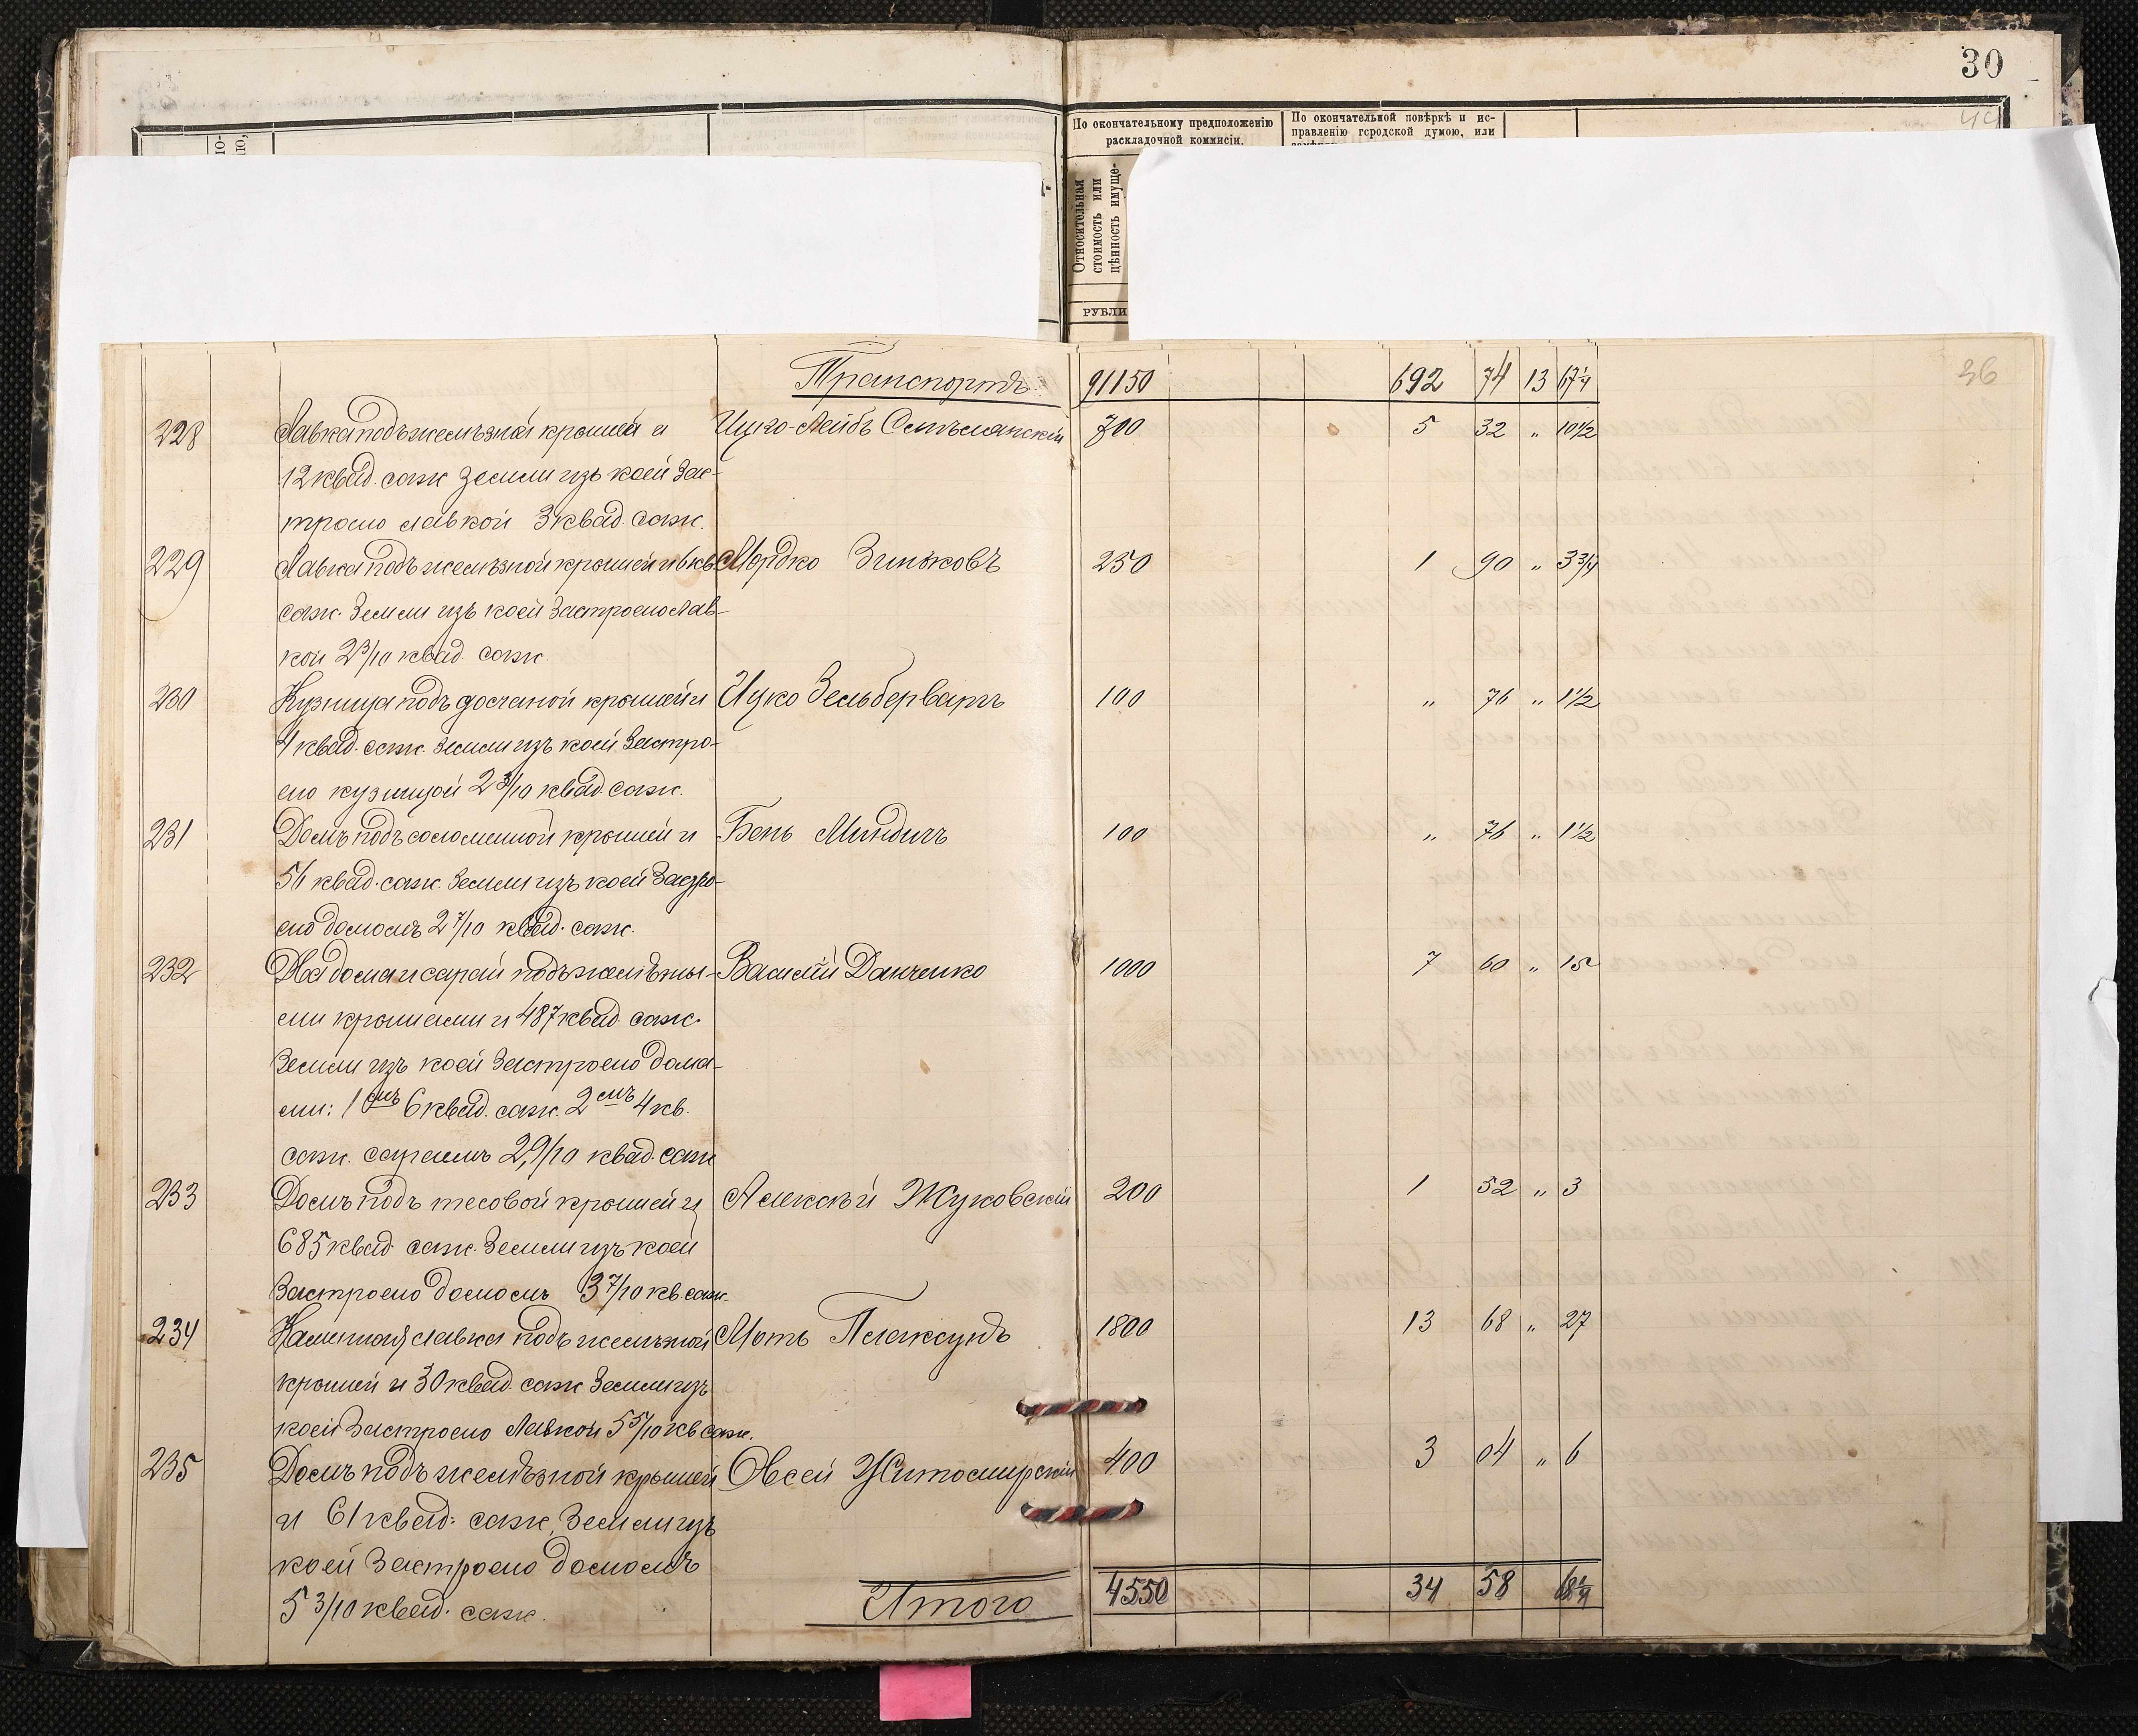 30
По окончательному предположенію
раскладочной коммисіи.
По окончательной повѣркѣ и ис-
правленію городской думою, или
Относительная
стоимость или
цѣнность имуще-
РУБЛИ
36
Транспортъ 91150 692 74 13 67¼
228 Лавка подъ желѣзной крышей и Ицко-Лейбъ 700 5 32 " 10½
12 квад. саж земли изъ коей зас-
троено лавкой 3 квад. саж.
229 Лавка подъ желѣзной крышей и 6 кв Мордко Зиньковъ 250 1 90 " 3¾
саж. земли изъ коей застроено лав-
кой 2 3/10 квад. саж.
230 Кузница подъ досчаной крышей и Ицко Зельберваргъ 100 " 76 " 1½
4 квад. саж. земли изъ коей застро-
ено кузницой 2 3/10 квад. саж.
231 Домъ подъ соломенной крышей и Бень Миндичъ 100 " 76 " 1½
54 квад. саж. земли изъ коей застро-
ено домомъ 2 7/10 квад. саж.
232 Два дома и сарай подъ желѣзны- Василій Данченко 1000 7 60 " 15
ми крышами и 487 квад. саж.
земли изъ коей застроено дома-
ми: 1мъ 6 квад. саж. 2мъ 4 кв.
саж. сараемъ 2,9/10 квад. саж
233 Домъ подъ тесовой крышей и Алексѣй Жуковскій 200 1 52 " 3
685 квад саж. земли изъ коей
застроено домомъ 3 7/10 кв. саж.
234 Каменная лавка подъ желѣзной Моть Плаксундъ 1800 13 68 " 27
крышей и 30 квад. саж земли изъ
коей застроено лавкой 5 5/10 кв саж.
235 Домъ подъ желѣзной крышей Овсей Житомирскій 400 3 04 " 6
и 61 квад. саж. земли изъ
коей застроено домомъ
5 3/10 квад. саж.
Итого 4550 34 58 68¼